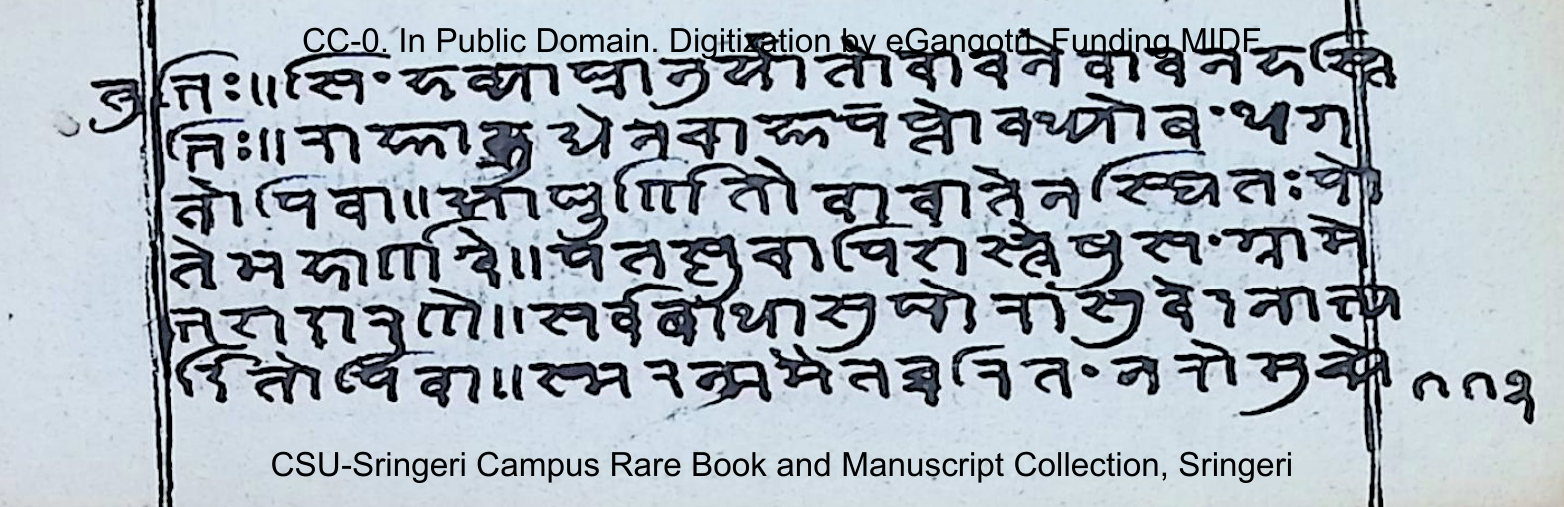 CC-0. In Public Domain. Digitization by eGangotri. Funding MIDF
त्तिः॥ सिंहव्याघ्रानुयातो वा वने वा वनहस्ति
त्तिः॥ राज्ञा क्रुद्धेन चाज्ञप्तो वध्यो बंधग
तोपि वा॥ आघुर्णितो वा वातेन स्थितः पो
ते महार्णवे॥ पतत्सु चापि शस्त्रेषु संग्रामे
सर्वाबाधासु घोरासु वेदनाभ्य
र्दितोपि वा॥ स्मरन्ममैतच्चरितं नरो मुच्ये
CSU-Sringeri Campus Rare Book and Manuscript Collection, Sringeri